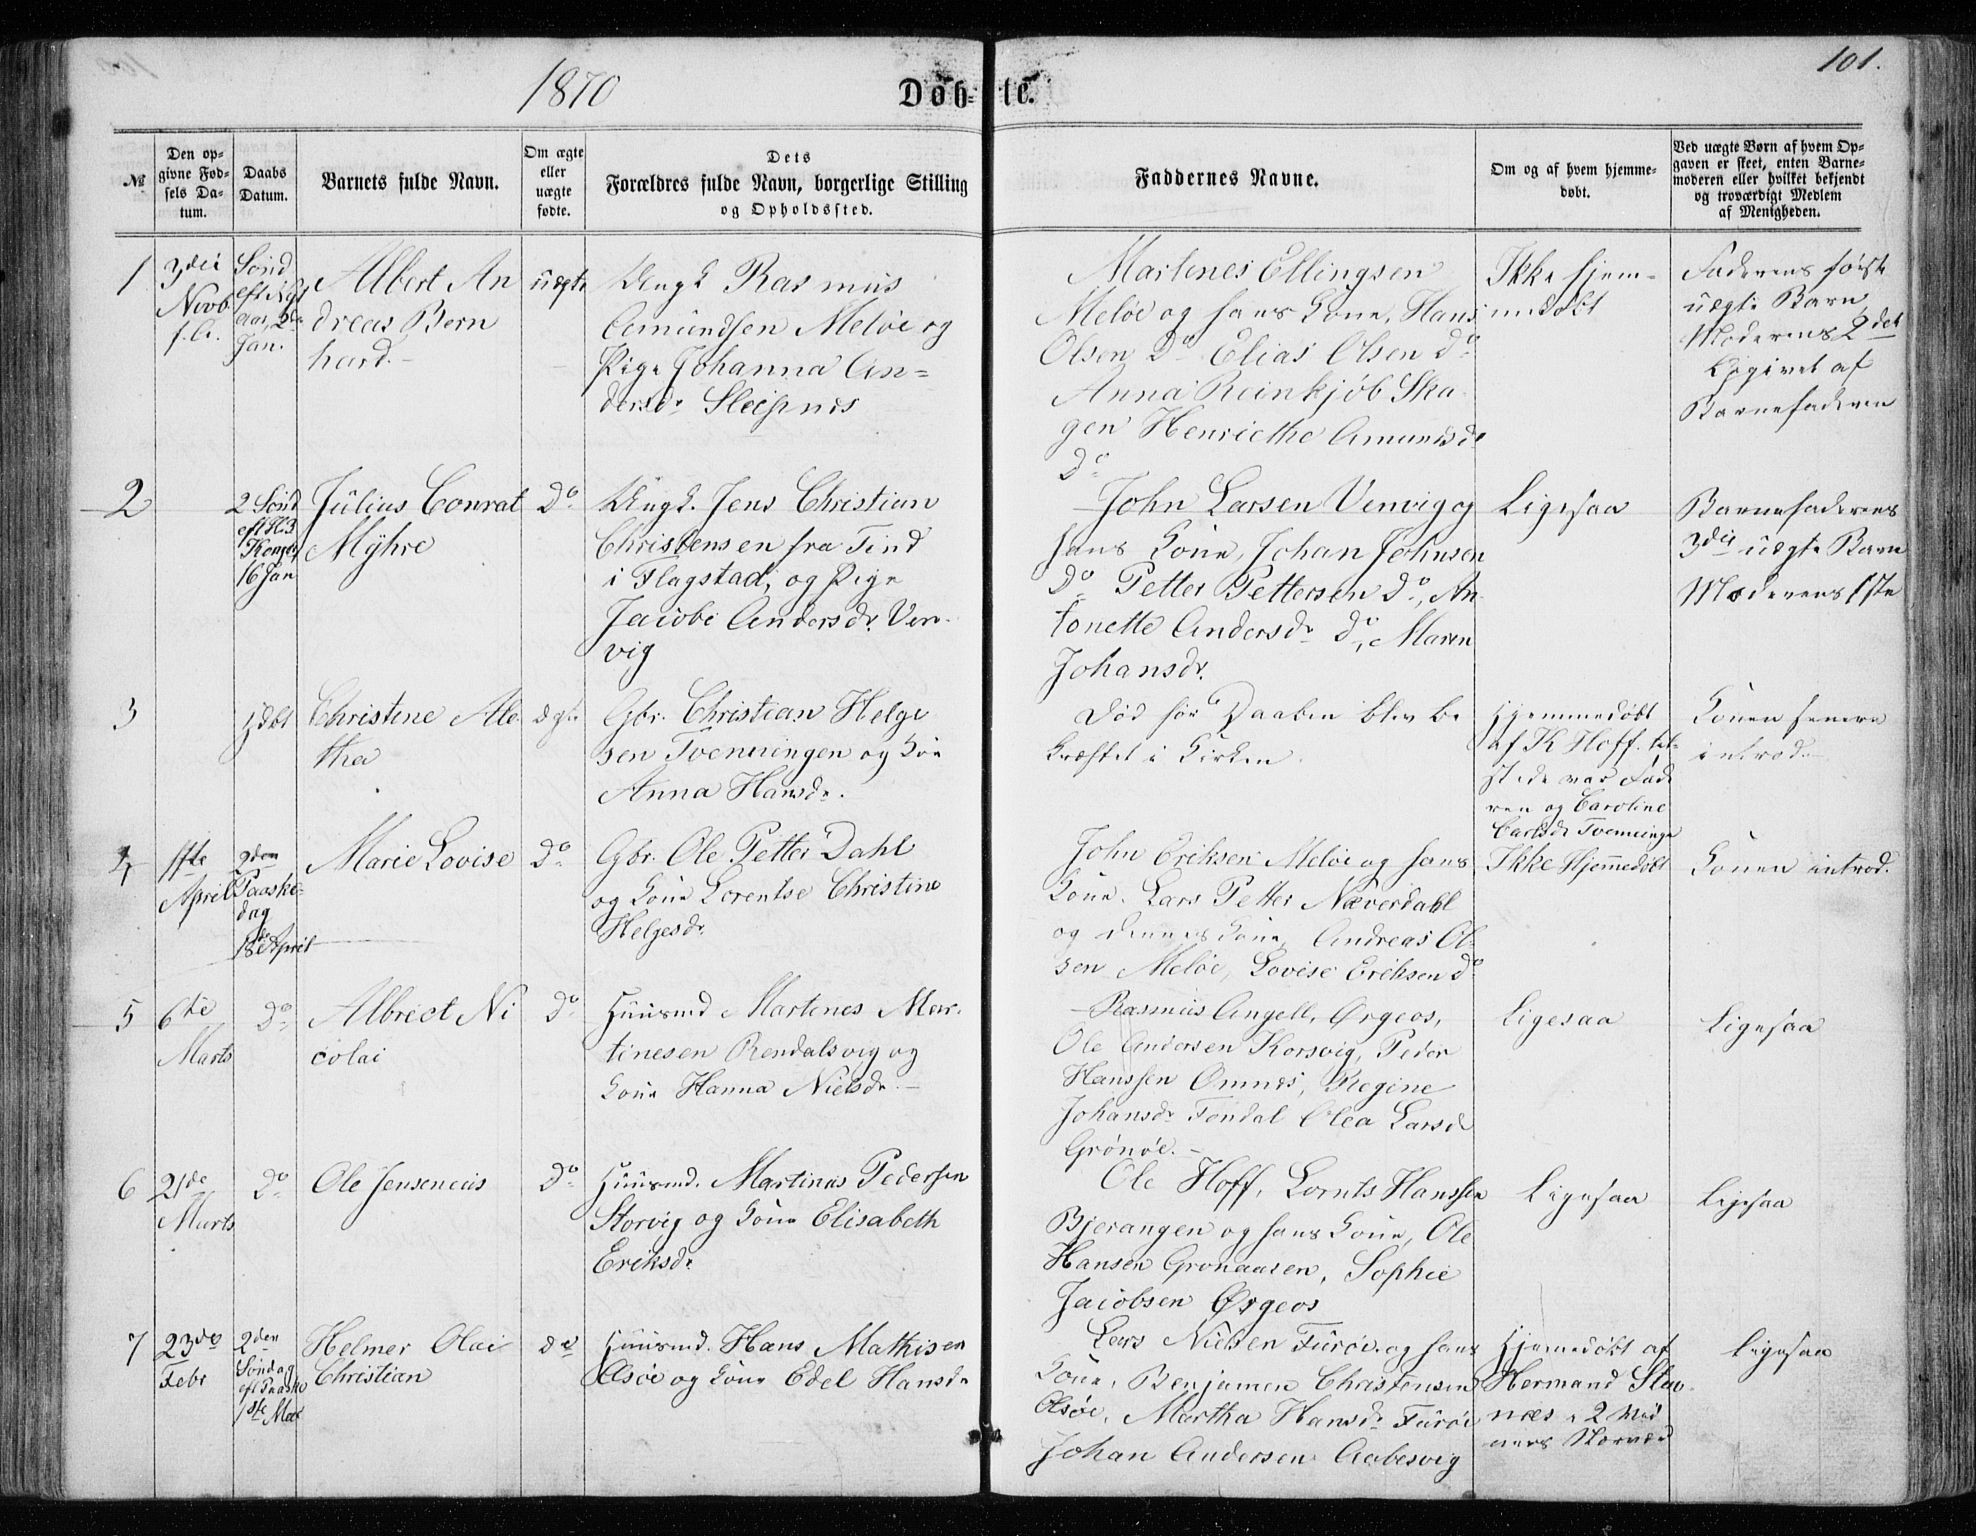 1870
Døb-te.
101.
№
Den op-
givne Fød-
sels Da-
tum.
Daabs
Datum.
Barnets fulde Navn.
Om ægte
eller
uægte
fødte.
Dets
Forældres fulde Navn, borgerlige Stilling
og Opholdssted.
Faddernes Navne.
Om og af hvem hjemme-
døbt.
Ved uægte Børn af hvem Op-
gaven er skeet, enten Barne-
moderen eller hvilket bekjendt
og troværdigt Medlem
af Menigheden.
1
3die
Novb
f. A.
Sønd
eft Nyt
aar, 2de
Jan.
Albert An
dreas Bern
hard. -
uægte
Ungk Rasmus
Amundsen Meløe og
Pige Johanna An=
dersdr Sleipnes
Martines Ellingsen
Meløe og hans Kone, Hans
Olsen Do Elias Olsen do
Anna Reinkjøb Ska
gen Henriethe Amundsdr
Do
Ikke hjem-
medøbt
Faderens første
uægte Barn
Moderens 2det
Opgivet af
Barnefaderen
2
2 Sønd
eft H. 3
Konger
16 Jan
Julius Conrat
Myhre
Do
Ungk. Jens Christian
Christensen fra Tind
i Flagstad, og Pige
Jacobe Andersdr. Ven-
vig
John Larsen Venvig og
hans Kone, Johan Johnsen
Do Petter Pettersen Do, An
tonette Andersdr do, Maren
Johansdr.
Ligesaa
Barnefaderens
3die uægte Barn
Moderens 1ste
3
hjdbt
Christine Ale
tha
ægte
Gbr. Christian Helge
sen Tvenningen og Kone
Anna Hansdr.
Død før Daaben blev be
kræftet i Kirken
Hjemmedøbt
af K Hoff. til-
stede var Fade
ren og Caroline
Carlsdr Tvenninge
Konen senere
introd.
4
1ste
April
2den
Paaske-
dag
18de April
Marie Lovise
Do
Gbr. Ole Petter Dahl
og Kone Lorentse Christine
Helgesdr
John Eriksen Meløe og hans
Kone. Lars Petter Næverdahl
og dennes Kone, Andreas Ol-
sen Meløe, Lovise Eriksen do
Ikke Hjemmedøbt
Konen introd.
5
6te
Marts
Do
Albrect Ni
colai
Do
Huusmd Martines Mar-
tinesen Rendalsvig og
Kone Hanna Nielsdr. -
Rasmus Angell, Ørgeos,
Ole Andersen Korsvig, Peder
Hanssen Ømnes, Regine
Johansdr Tøndal Olea Larsdr
Grønøe. -
Ligesaa
Ligesaa
6
21de
Marts
Do
Ole Jenseneus
Do
Huusmd. Martinus Pedersen
Storvig og Kone Elisabeth
Eriksdr
Ole Hoff, Lornts Hanssen
Bjerangen og hans Kone, Ole
Hansen Grønaasen, Sophie
Jacobsen Ørgeos
Ligesaa
Ligesaa
7
23de
Febr
2den
Søndag
eft Paaske
1ste Mai
Helmer Olai
Christian
do
Huusmd. Hans Mathisen
Æsøe og Kone Edel Hansdr
Lars Nielsen Furøe og hans
Kone, Benjamen Christensen
Æsøe, Martha Hansdr Furøe
Johan Andersen Aabesvig
Hjemmedøbt af
Hermand Stav
næs
Ligesaa